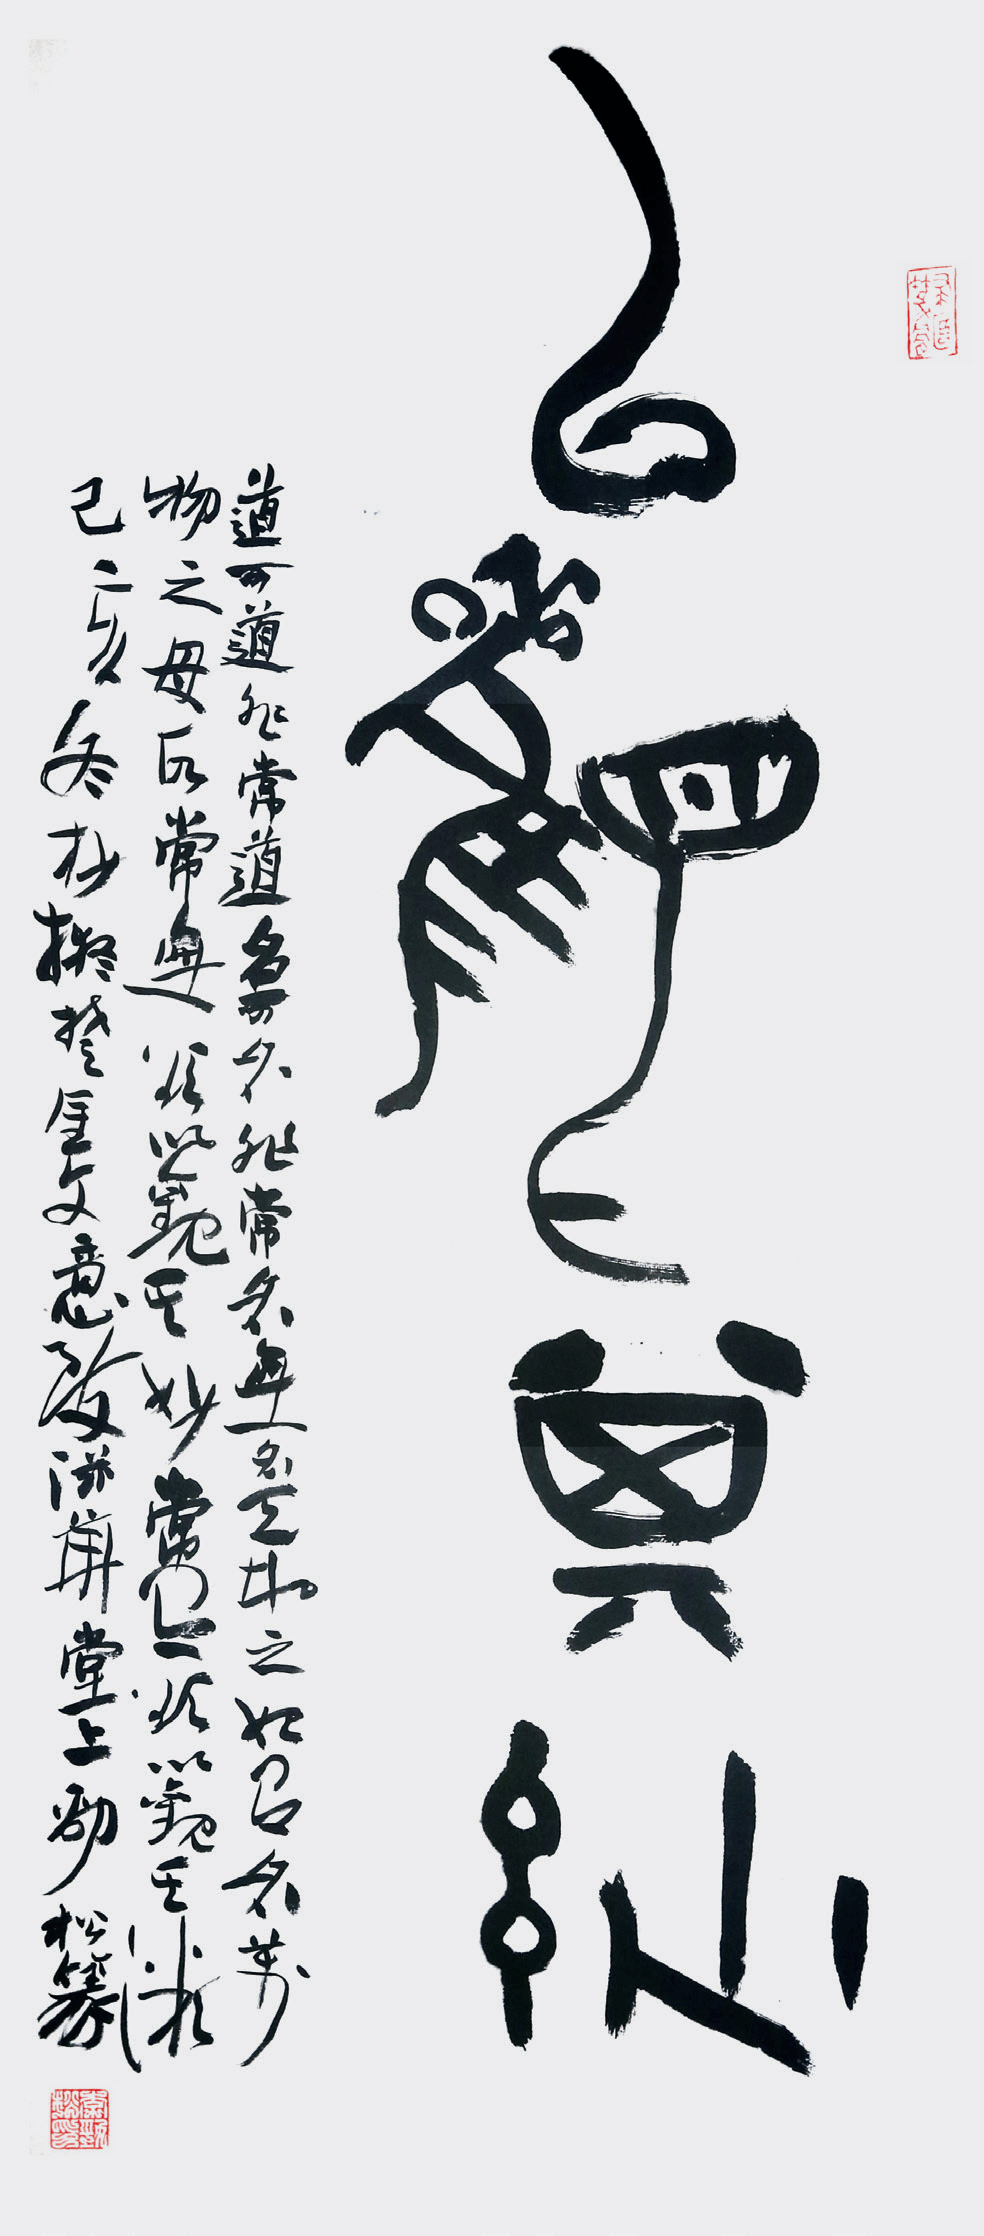 以觀其玅
道可道非常道名可名非常名無名天地之始有名萬
物之母故常無欲以觀其妙常有欲以觀其徼
己亥冬杪擬楚金文意致堂上勁松篆